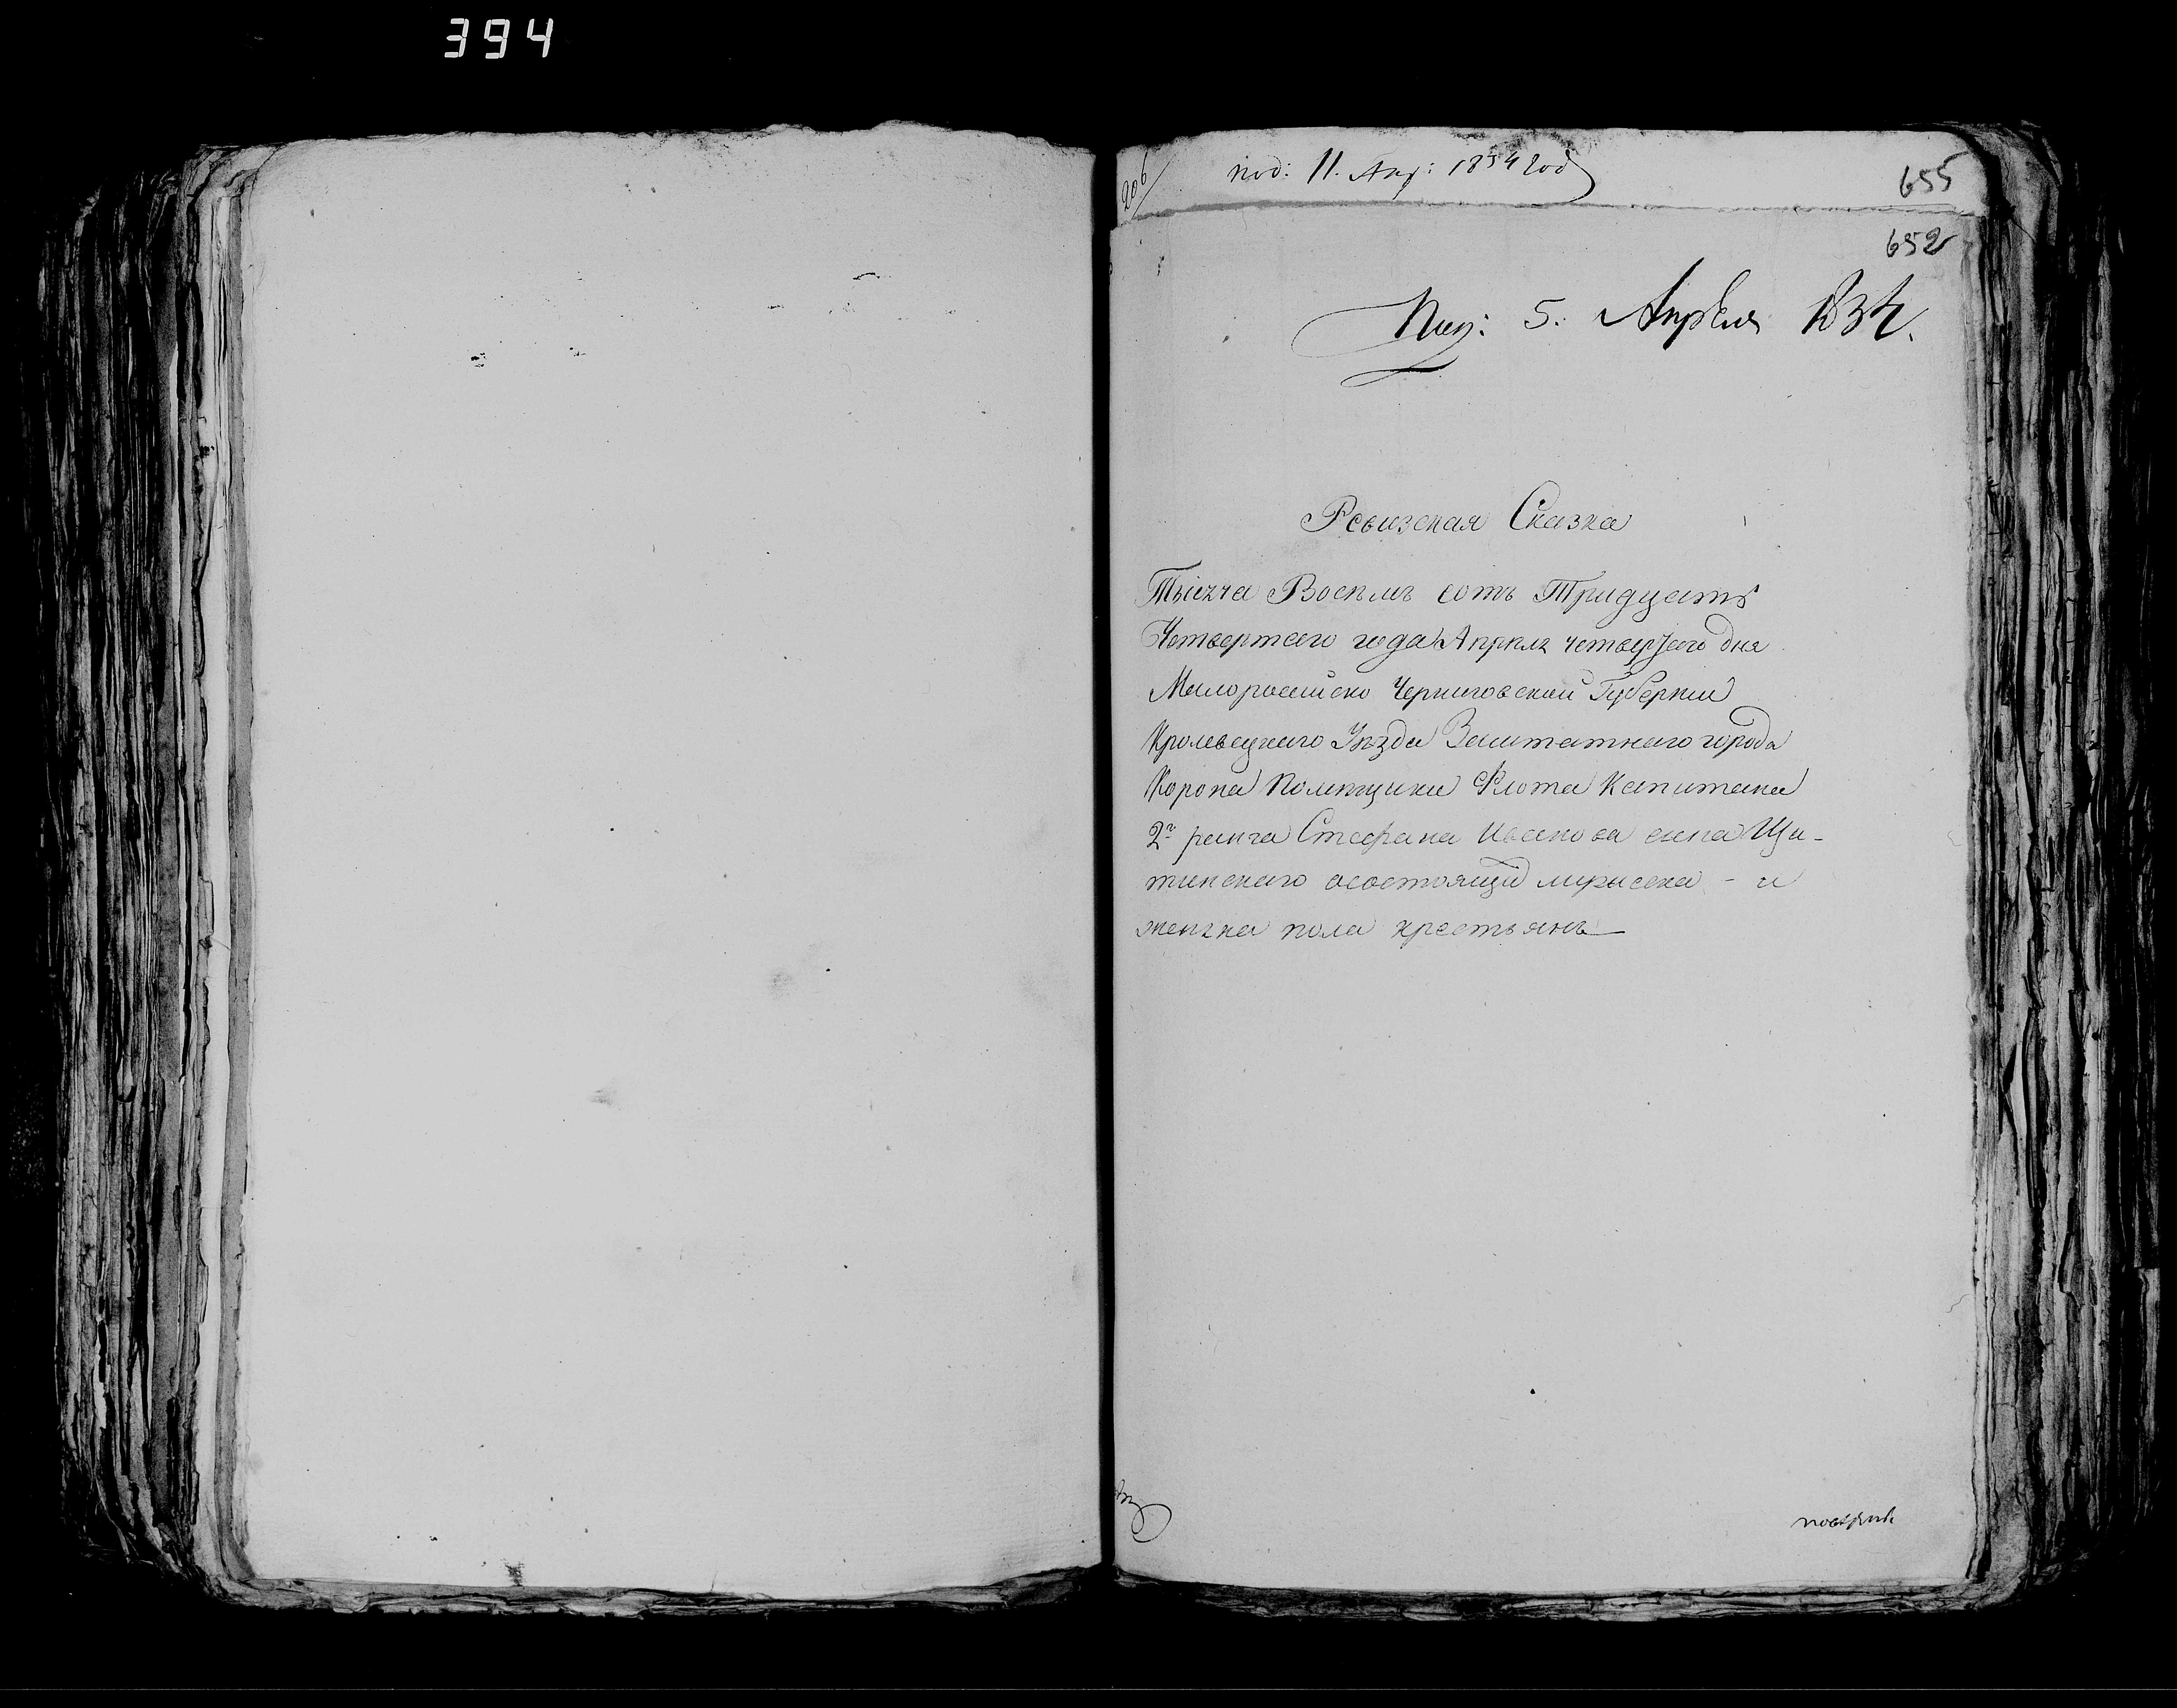 394
206
под: 11. Апр: 1834 год
655
652
Пол: 5. Апрѣля 1834.
Ревизская Сказка
Тысяча Восемь сотъ Тридцать
Четвертаго года Апрѣля четвертаго дня
Малоросийско Черниговской Губернии
Кролевецкаго Уезда Заштатнаго города
Коропа Помещика Флота Капитана
2г ранга Стефана Иванова сына Щи-
тинскаго осостоящих мужеска - и
женска пола крестьянъ